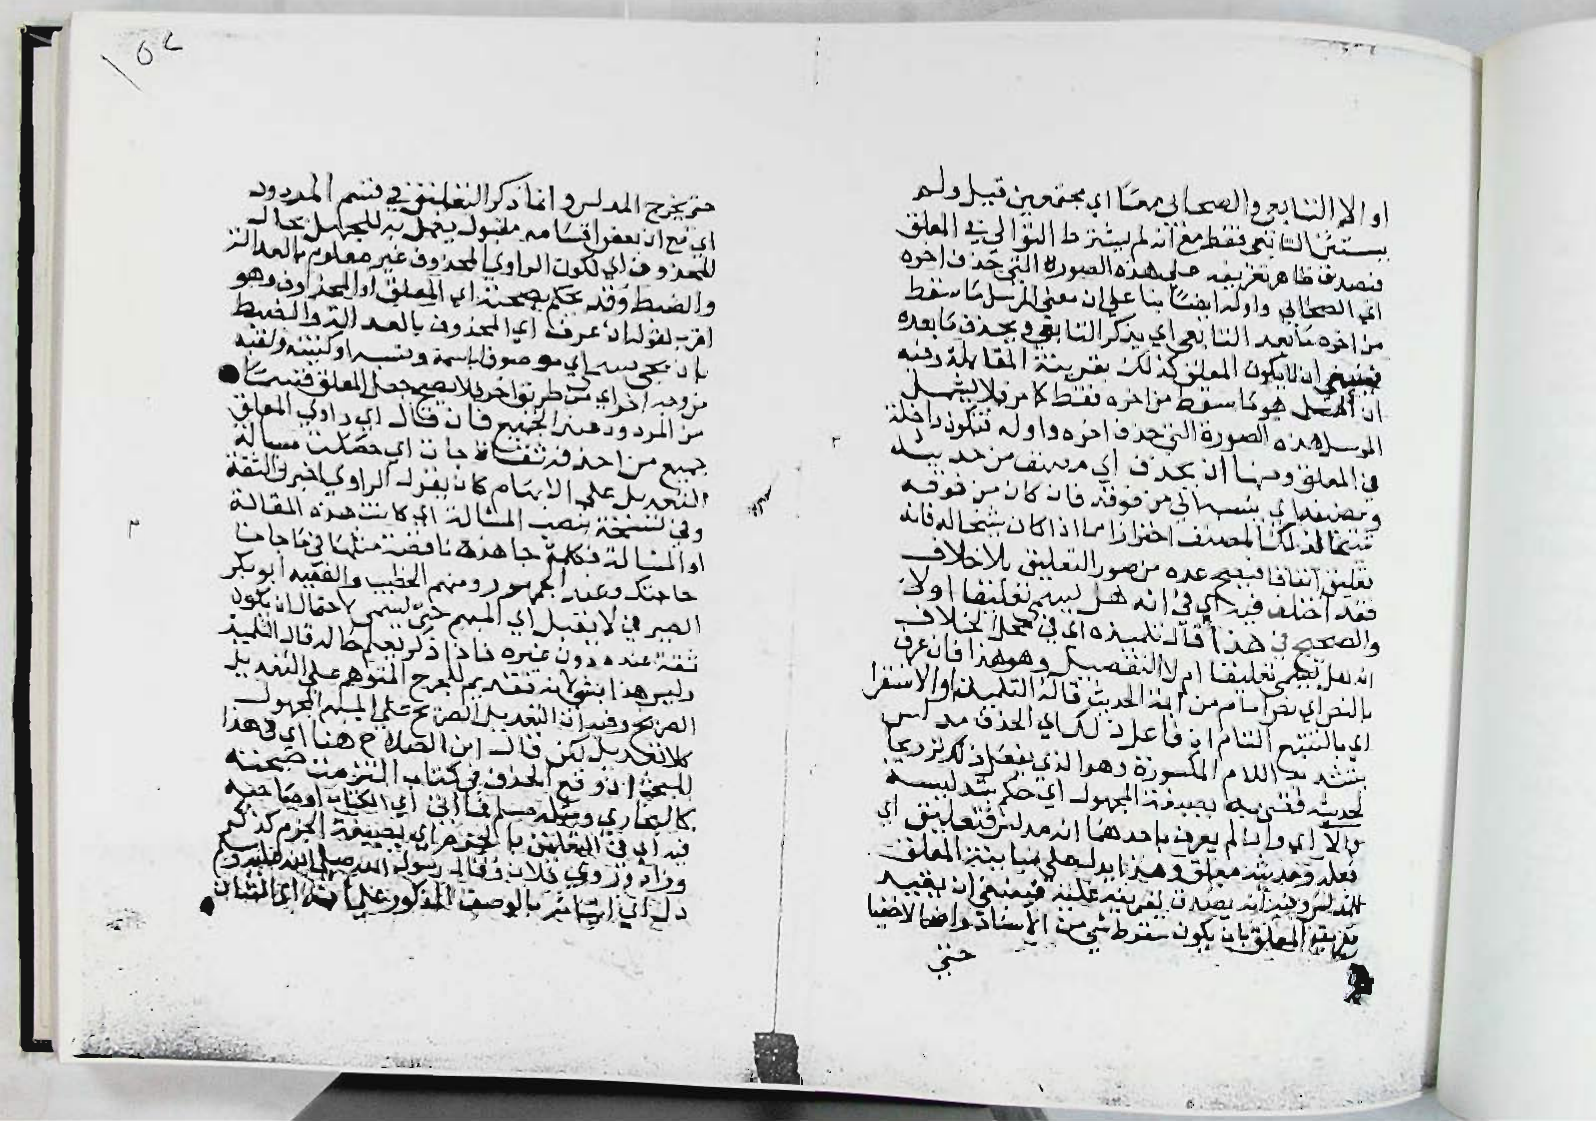 او الا التابعي والصحابي معًا اي مجتمعين قيل ولم
يستثن التابعي فقط مع انه لم يشترط التوالي في المعلق
فيصدق ظاهر تعريفه على هذه الصورة التي حذف اخره
اي الصحابي واوله ايضًا بنا على ان معنى المرسل ما سقط
من اخره ما بعد التابعي اي يذكر التابعي ويحذف ما بعده
فينبغي ان لا يكون المعلق كذلك بقرينة المقابلة وفيه
ان المرسل هو ما سقط من اخره فقط كما مر فلا يشمل
المرسل هذه الصورة التي حذف اخره واوله فتكون داخلة
في المعلق ومنها ان يحذف اي مصنف من حديثه
ويضيفه اي ينسبه الي من فوقه فان كان من فوقه
شيخا لذلك المصنف احترازا مما اذا كان شيخا له فانه
تعليق اتفاقا فيصح عده من صور التعليق بلا خلاف
فقد اختلف فيه اي في انه هل يسمى تعليقا اولا
والصحيح في هذا قال تلميذه اي في محل الخلاف
انه هل يسمى تعليقا ام لا التفصيل وهو هذا فان عرف
بالنص اي نص امام من ائمة الحديث قاله التلميذ او الاستقرا
اي بالتتبع التام ان فاعل ذلك اي الحذف مدلس
بتشديد اللام المكسورة وهو الذي يفعل ذلك ترويجا
لحديثه قضي به بصيغة المجهول اي حكم بتدليسه
والا اي وان لم يعرف باحدهما انه مدلس فتعليق اي
فعله وحديثه معلق وهذا يدل على مباينة المعلق
المدلس وفيه انه يصدق تعريفه عليه فينبغي ان يقيد
تعريف المعلق بان يكون سقوط شي من الاسناد واضحا لا خفيا
حتي
٥٢
حتى يخرج المدلس وانما ذكر التعليق في قسم المردود
اي مع ان بعض اقسامه مقبول يعمل به للجهل بحال
المحذوف اي لكون الراوي المحذوف غير معلوم بالعدالة
والضبط وقد يحكم بصحته اي المعلق او المحذوف وهو
اقرب لقوله ان عرف اي المحذوف بالعدالة والضبط
بان يجي مسمى اي موصوفا باسمه ونسبه او كنيته ولقبه
من وجه اخر اي من طريق اخر فلا يصح جعل المعلق قسمًا
من المردود عند الجميع فان قال اي راوي المعلق
جميع من احذفه ثقات جات اي حصلت مسالة
التعديل على الابهام كان يقول الراوي اخبرني الثقة
وفي نسخة بنصب المسالة اي كانت هذه المقالة
او المسالة فكلمة جا هذه ناقصة مثلها في ما جات
حاجتك وعند الجمهور ومنهم الخطيب والفقيه ابو بكر
الصيرفي لا يقبل اي المبهم حتى يسمى لاحتمال ان يكون
ثقة عنده دون غيره فاذا ذكر يعلم حاله قال التلميذ
وليس هذا بشي لانه تقديم للجرح المتوهم على التعديل
الصريح وفيه ان التعديل الصريح على المبهم المجهول
كلا تعديل لكن قال ابن الصلاح هنا اي في هذا
المبحث ان وقع الحذف في كتاب التزمت صحته
كالبخاري ومثله مسلم فما اتى اي الكتاب او صاحبه
فيه اي في التعليق بالجزم اي بصيغة الجزم كذكر
وزاد وروى فلان وقال رسول الله صلى الله عليه وسلم
دل اي اتيانه بالوصف المذكور على انه اي الشان